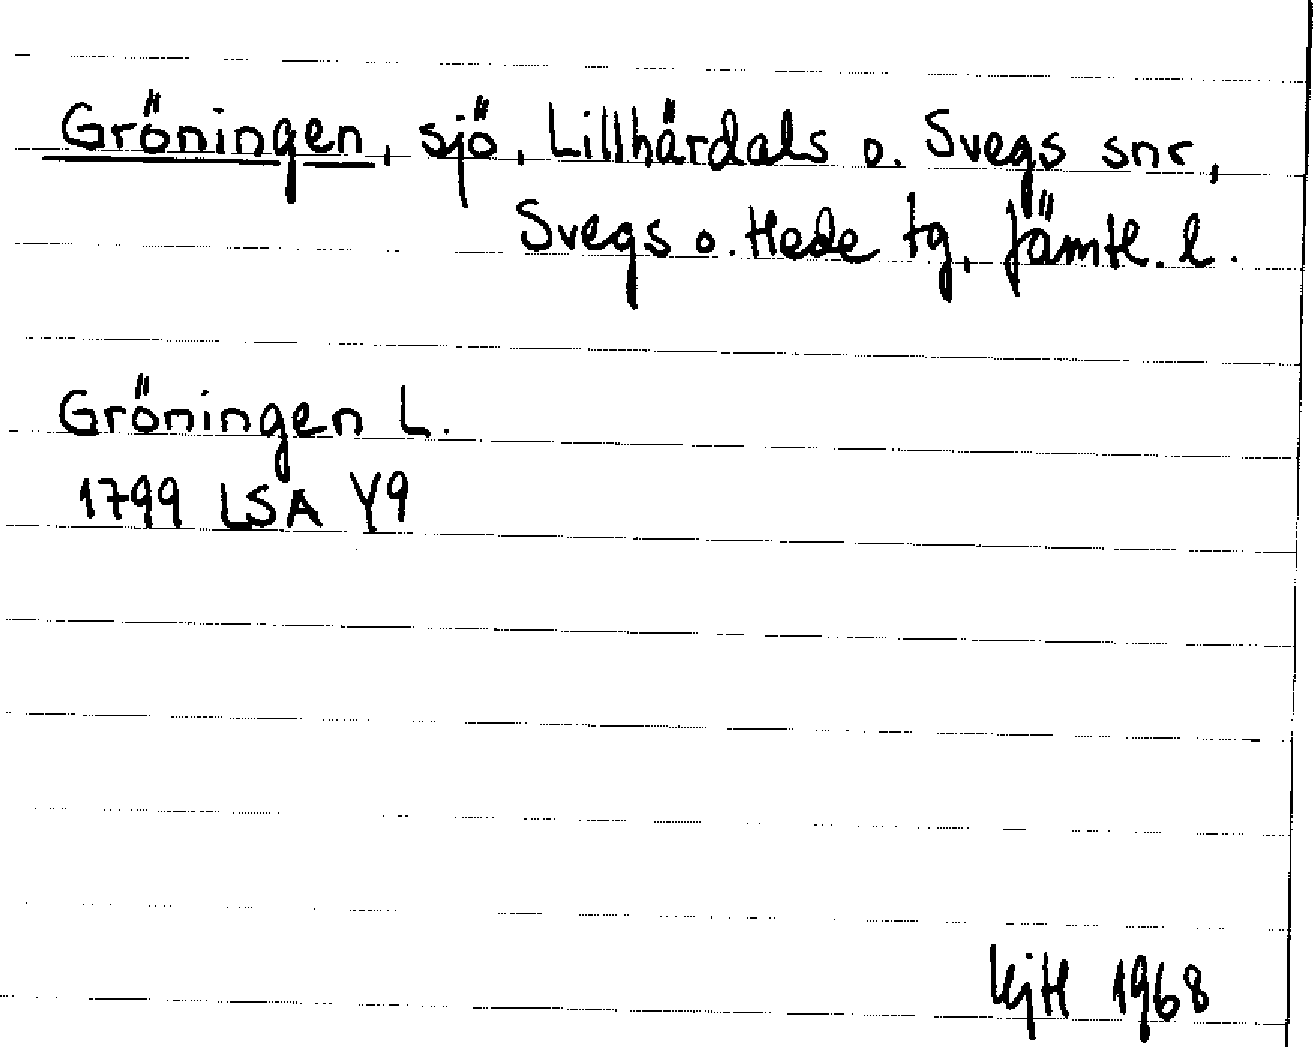 Gröningen, sjö, Lillhärdals o. Svegs snr,
Svegs o. Hede tg, Jämtl. l.
Gröningen L.
1799 LSA Y9
KjH 1968